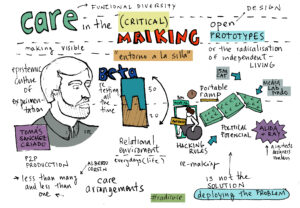 care
→ FUNCTIONAL DIVERSITY
in the
(CRITICAL)
MAIKING
open
DESIGN
PROTOTYPES
or the radicalisation
of independent
LIVING
making visible
"entorno a la silla"
epistemic
culture
of
experimen-
tation
TOMÁS
SANCHEZ
CRIADO
P2P
PRODUCTION
→ less than many
and less than
one
Beta
testing
all
the
time
50
20
Relational
environment
everyday(life)
ALBERTO
CORSÍN
care
arrangements
Portable
ramp
HACKING
RULES
re-making
POLITICAL
POTENCIAL
MEDIA
LAB
PRADO
ALIDA
DIAZ
architects
designers
→ is not the
SOLUTION
deploying the PROBLEM